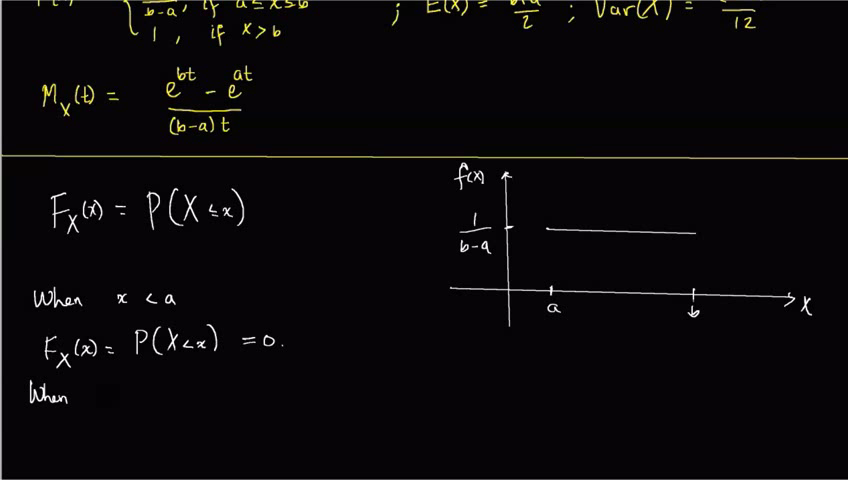 b-a, if a ≤ x ≤ b ; E(X) = ; Var(X) =
1, if x > b 2 12
M_X(t) = e^{bt} - e^{at}
(b-a)t
F_X(x) = P(X ≤ x)
When x < a
F_X(x) = P(X < x) = 0.
When
f(x)
1
b-a
a b X